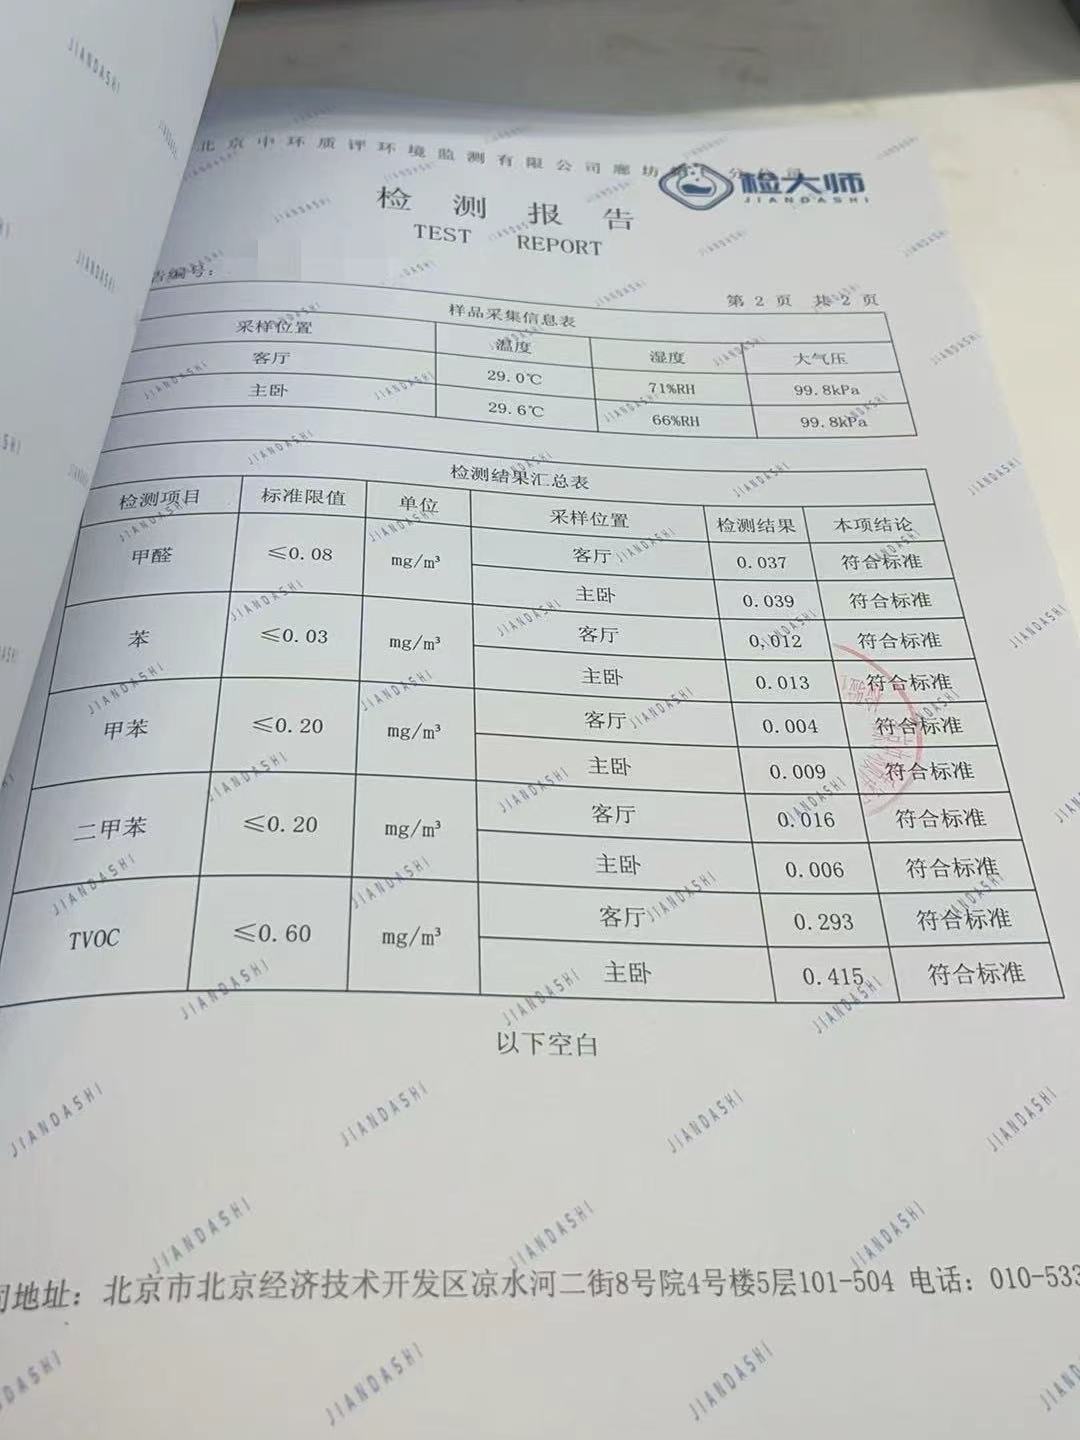 北京中环质评环境监测有限公司廊坊
分公司
检大师
JIANDASHI
检测报告
TEST REPORT
告编号:
第 2 页 共 2 页
样品采集信息表
采样位置 温度 湿度 大气压
客厅 29.0℃ 71%RH 99.8kPa
主卧 29.6℃ 66%RH 99.8kPa
检测结果汇总表
检测项目 标准限值 单位 采样位置 检测结果 本项结论
甲醛 ≤0.08 mg/m³ 客厅 0.037 符合标准
主卧 0.039 符合标准
苯 ≤0.03 mg/m³ 客厅 0.012 符合标准
主卧 0.013 符合标准
甲苯 ≤0.20 mg/m³ 客厅 0.004 符合标准
主卧 0.009 符合标准
二甲苯 ≤0.20 mg/m³ 客厅 0.016 符合标准
主卧 0.006 符合标准
TVOC ≤0.60 mg/m³ 客厅 0.293 符合标准
主卧 0.415 符合标准
以下空白
司地址: 北京市北京经济技术开发区凉水河二街8号院4号楼5层101-504 电话: 010-533